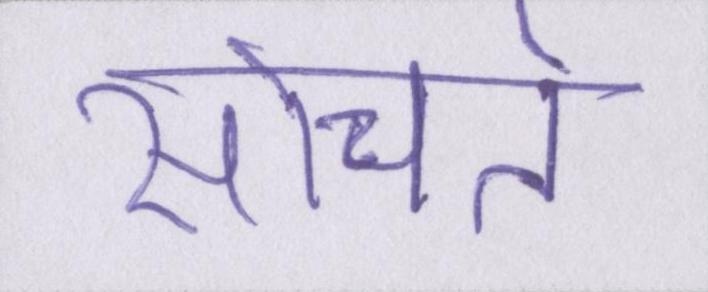 सोचते